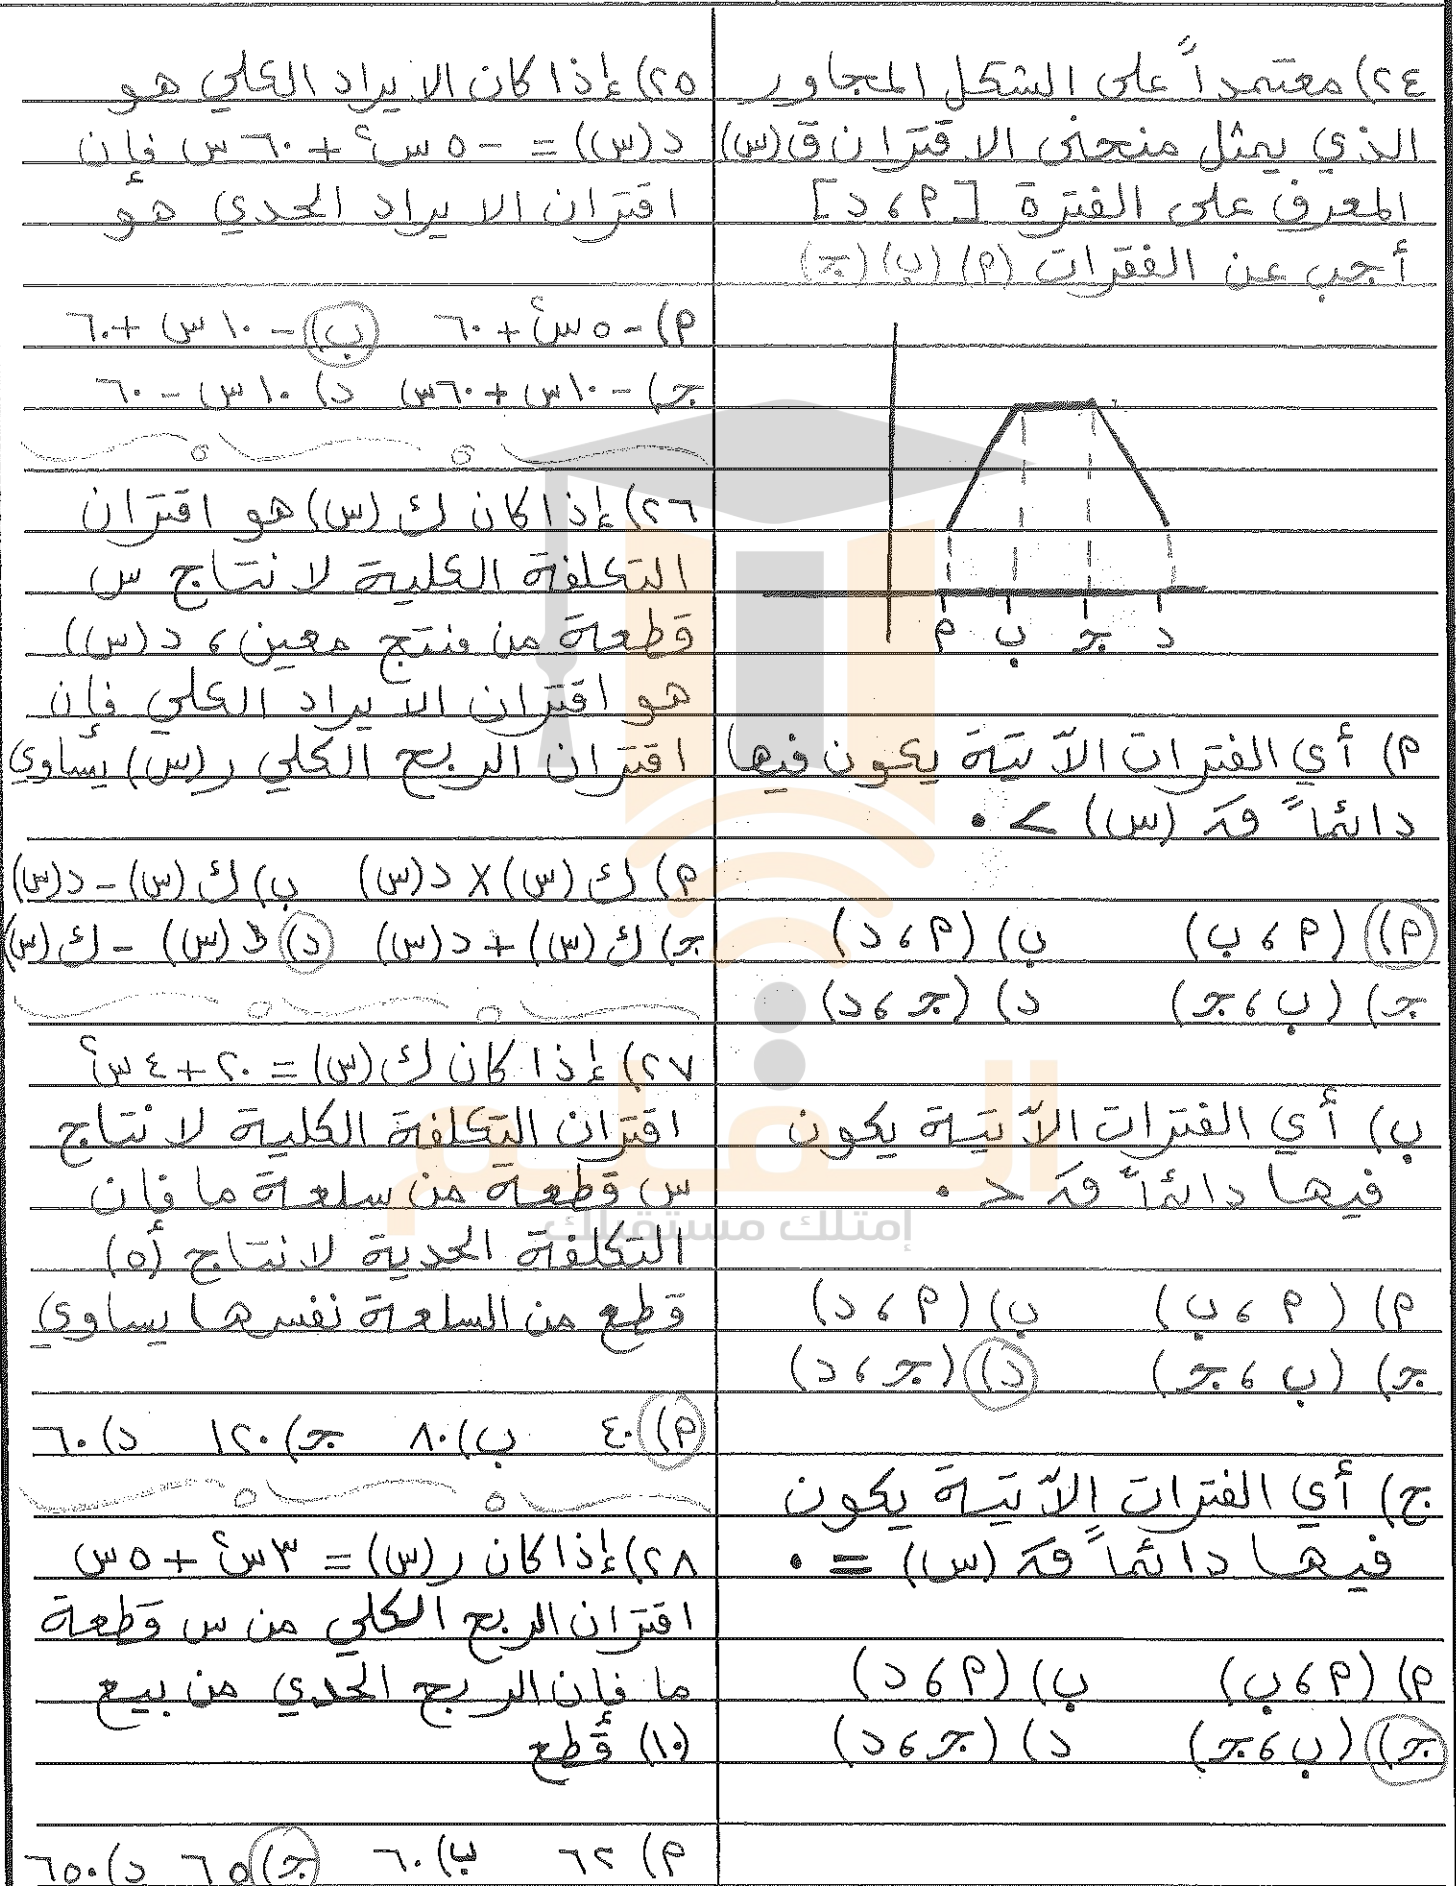 ٢٤) معتمداً على الشكل المجاور
الذي يمثل منحنى الاقتران ق(س)
المعرف على الفترة [ P ، د ]
أجب عن الفقرات (P) (ب) (ج)
P ب ج د
P) أي الفترات الآتية يكون فيها
دائماً قَ (س) > ٠
P) (P ، ب) ب) (P ، د)
ج) (ب ، ج) د) (ج ، د)
ب) أي الفترات الآتية يكون
فيها دائماً قَ < ٠
P) (P ، ب) ب) (P ، د)
ج) (ب ، ج) د) (ج ، د)
ج) أي الفترات الآتية يكون
فيها دائماً قَ (س) = ٠
P) (P ، ب) ب) (P ، د)
ج) (ب ، ج) د) (ج ، د)
٢٥) إذا كان الايراد الكلي هو
د(س) = - ٥س٢ + ٦٠س فإن
اقتران الايراد الحدي هو
P) - ٥س٢ + ٦٠ ب) - ١٠س + ٦٠
ج) - ١٠س + ٦٠س د) ١٠س - ٦٠
٢٦) إذا كان ك (س) هو اقتران
التكلفة الكلية لانتاج س
قطعة من منتج معين ، د (س)
هو اقتران الايراد الكلي فإن
اقتران الربح الكلي ر(س) يساوي
P) ك (س) × د (س) ب) ك (س) - د(س)
ج) ك (س) + د (س) د) د (س) - ك (س)
٢٧) إذا كان ك (س) = ٢٠ + ٤س٢
اقتران التكلفة الكلية لانتاج
س قطعة من سلعة ما فإن
التكلفة الحدية لانتاج (٥)
قطع من السلعة نفسها يساوي
P) ٤٠ ب) ٨٠ ج) ١٢٠ د) ٦٠
٢٨) إذا كان ر(س) = ٣س٢ + ٥س
اقتران الربح الكلي من س قطعة
ما فإن الربح الحدي من بيع
(١٠) قطع
P) ٦٢ ب) ٦٠ ج) ٦٥ د) ٦٥٠
المعلم
إمتلك مستقبلك